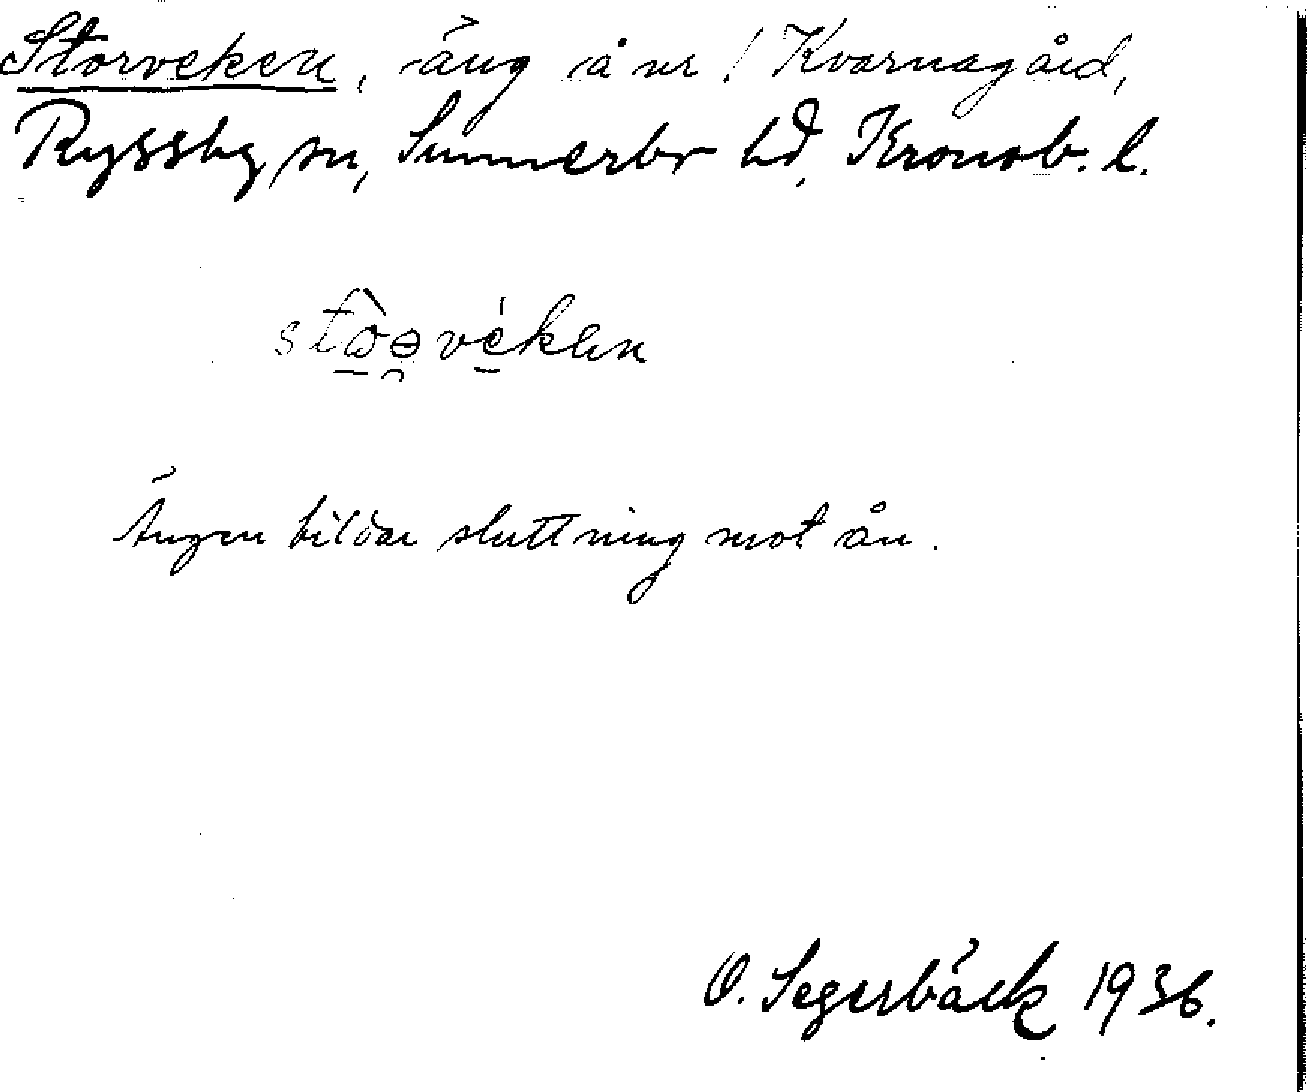 Storveken, äng å nr 1 Kvarnagård,
Ryssby sn, Sunnerbo hd, Kronob. l.
stòəvéken
Ängen bildar sluttning mot ån.
O. Segerbäck 1936.